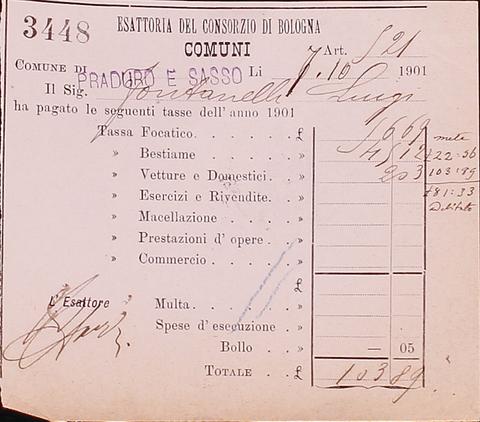 3448
ESATTORIA DEL CONSORZIO DI BOLOGNA
COMUNI
Art. 521
COMUNE DI PRADURO E SASSO Li 10 1901
Il Sig. Fontanelli Luigi
ha pagato le seguenti tasse dell' anno 1901
Tassa Focatico . . . . . £
» Bestiame . . . . . » 45 12
» Vetture e Domestici . » 2 03 103:89
» Esercizi e Rivendite. »
» Macellazione . . . . »
» Prestazioni d' opere . »
» Commercio . . . . . »
£
L' Esattore Multa . . . . . . »
Spese d' esecuzione . »
Bollo . . » — 05
TOTALE . . £ 103 89